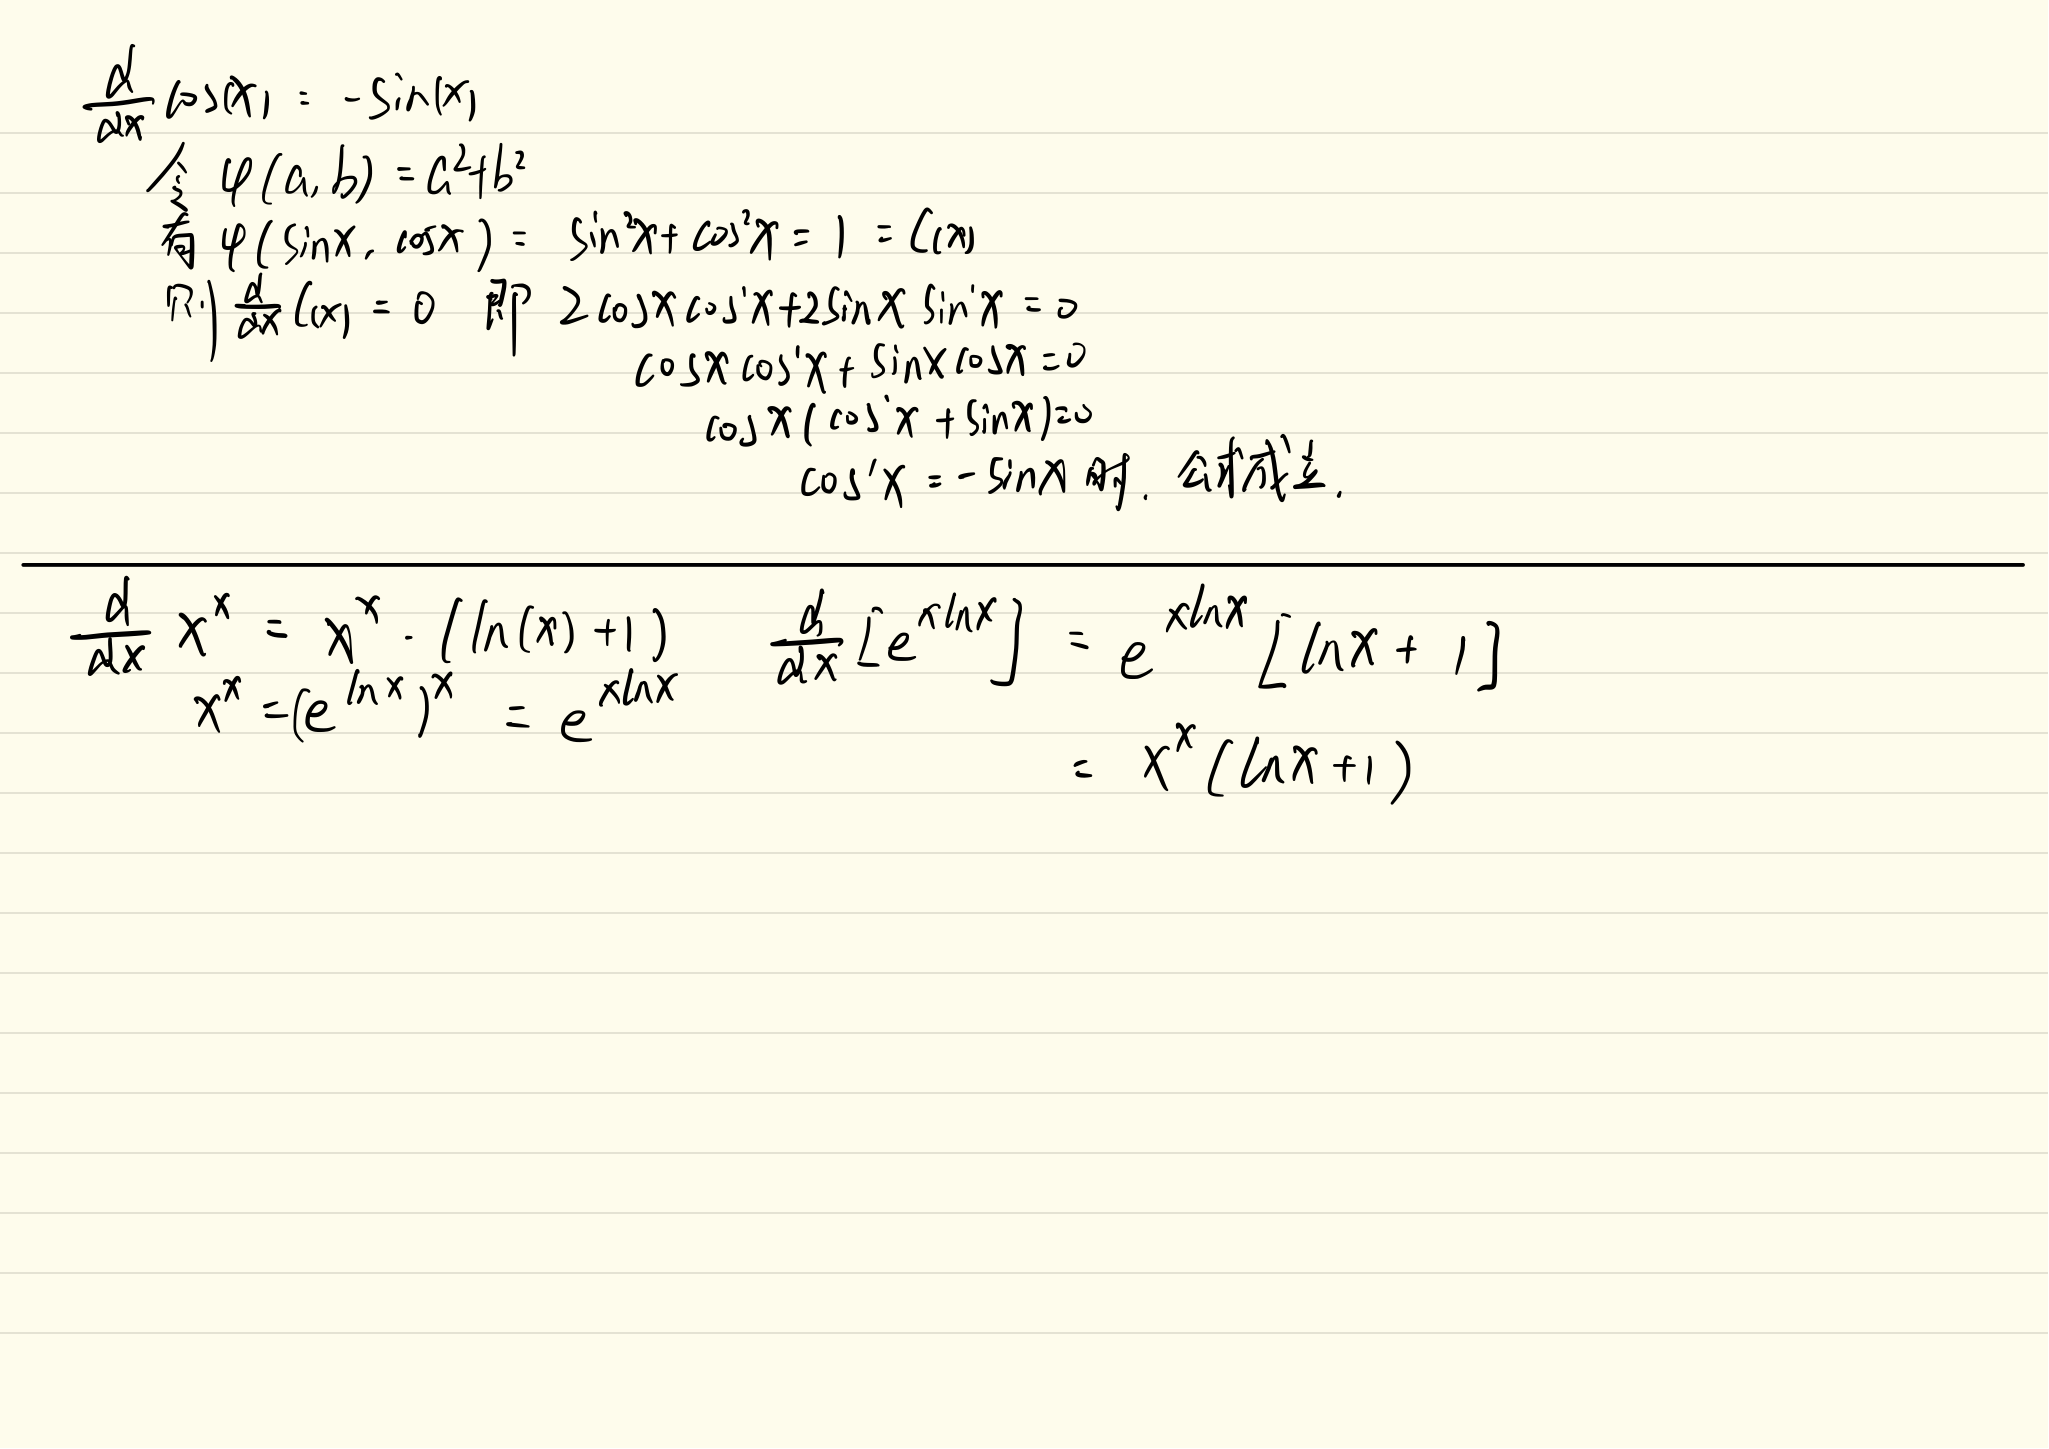 d/dx cos(x) = -sin(x)
令 φ(a, b) = a²+b²
有 φ(sinx, cosx) = sin²x + cos²x = 1 = C(x)
则 d/dx C(x) = 0 即 2cosx cos'x+2sinx sin'x = 0
cosx cos'x + sinx cosx = 0
cosx(cos'x + sinx)=0
cos'x = -sinx 时. 公式成立.
d/dx x^x = x^x · (ln(x)+1)
x^x = (e^{lnx})^x = e^{xlnx}
d/dx [e^{xlnx}] = e^{xlnx} [lnx + 1]
= x^x (lnx+1)